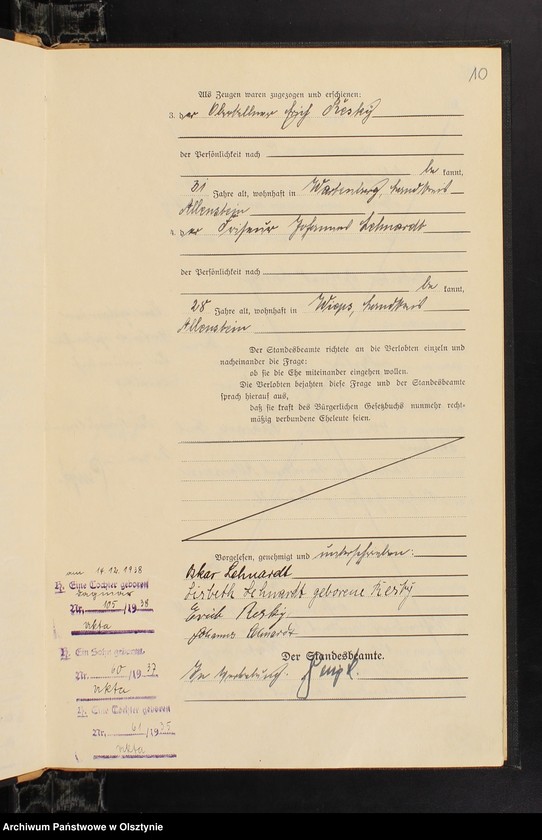 10
Als Zeugen waren zugezogen und erschienen:
3. der Oberkellner Erich Resky
der Persönlichkeit nach
be kannt,
31 Jahre alt, wohnhaft in Wartenburg, Landkreis
Allenstein
4. der Friseur Johannes Lehnardt
der Persönlichkeit nach
be kannt,
28 Jahre alt, wohnhaft in Wieps, Landkreis
Allenstein
Der Standesbeamte richtete an die Verlobten einzeln und
nacheinander die Frage:
ob sie die Ehe miteinander eingehen wollen.
Die Verlobten bejahten diese Frage und der Standesbeamte
sprach hierauf aus,
daß sie kraft des Bürgerlichen Gesetzbuchs nunmehr recht-
mäßig verbundene Eheleute seien.
Vorgelesen, genehmigt und unterschrieben:
Oskar Lehnardt
Lisbeth Lehnardt geborene Resky
Erich Resky
Johannes Lehnardt
Der Standesbeamte.
In Vertretung.
am 14.12.1938
H. Eine Tochter geboren
Dagmar
Nr. 105 /19 38
H. Ein Sohn geboren.
Nr. 60 /19 37
H. Eine Tochter geboren
Nr. 61 /19 35
Archiwum Państwowe w Olsztynie